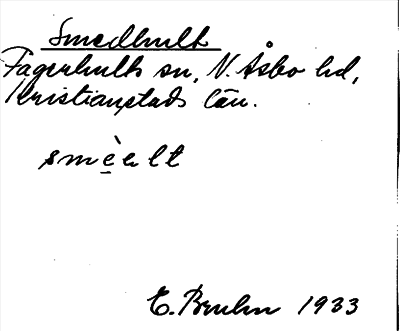 Smedhult
Fagerhults sn, N. Åsbo hd,
Kristianstads län.
smèhlt
E. Bruhn 1933